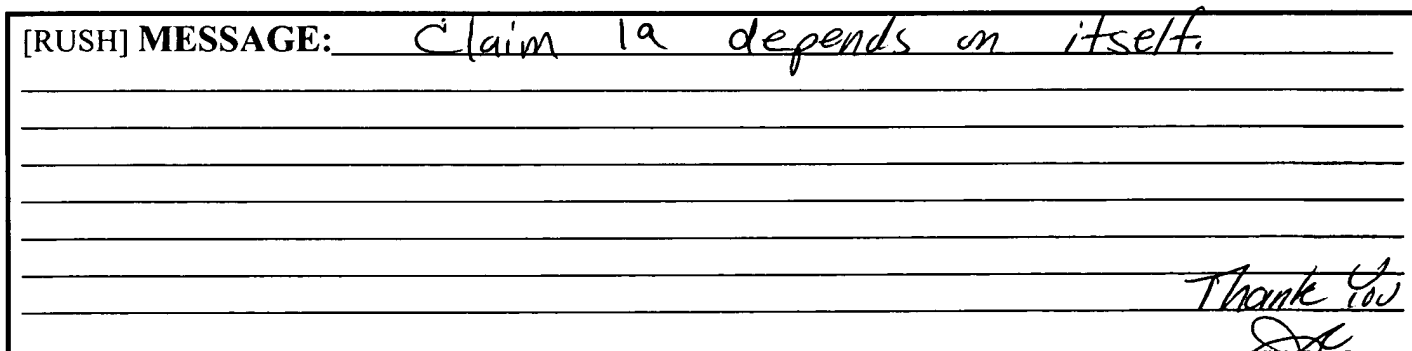 [RUSH] MESSAGE: Claim 19 depends on itself.
Thank You